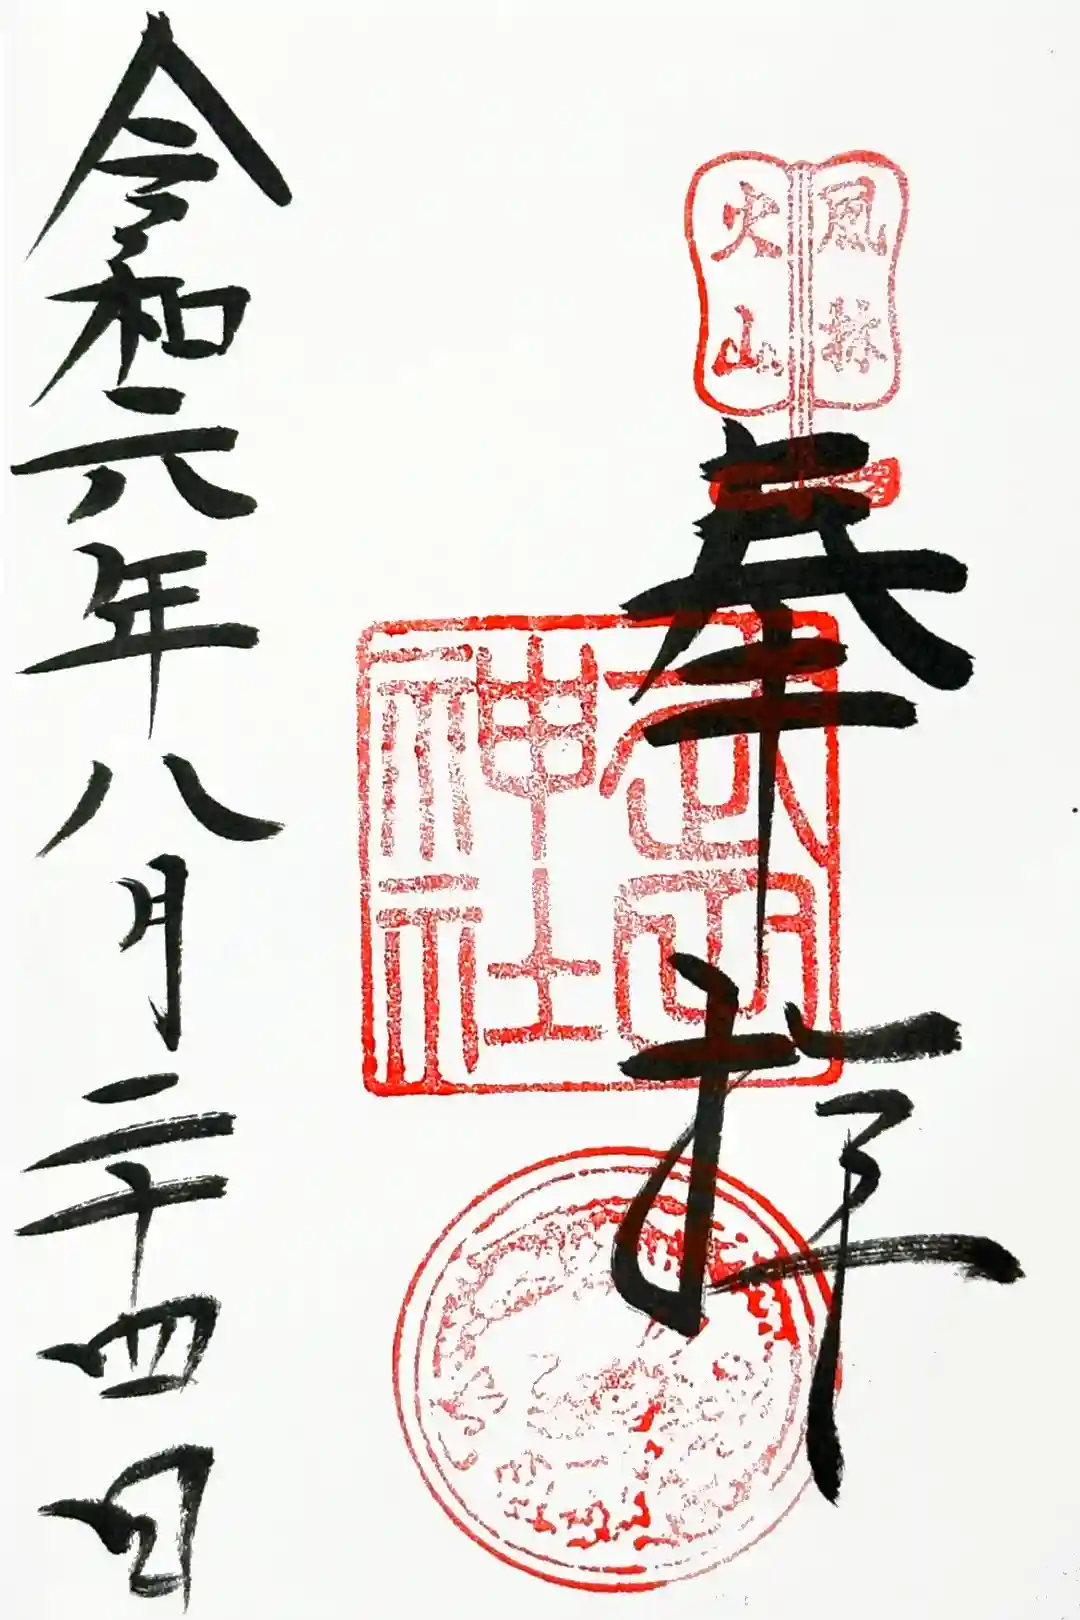 風林
火山
奉拝
武田
神社
令和六年八月二十四日